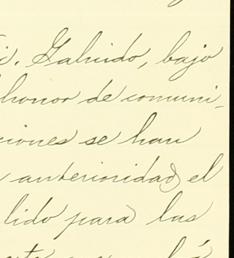 Galindo, bajo
honor de comuni-
ciones se han
anterioridad el
lido para las